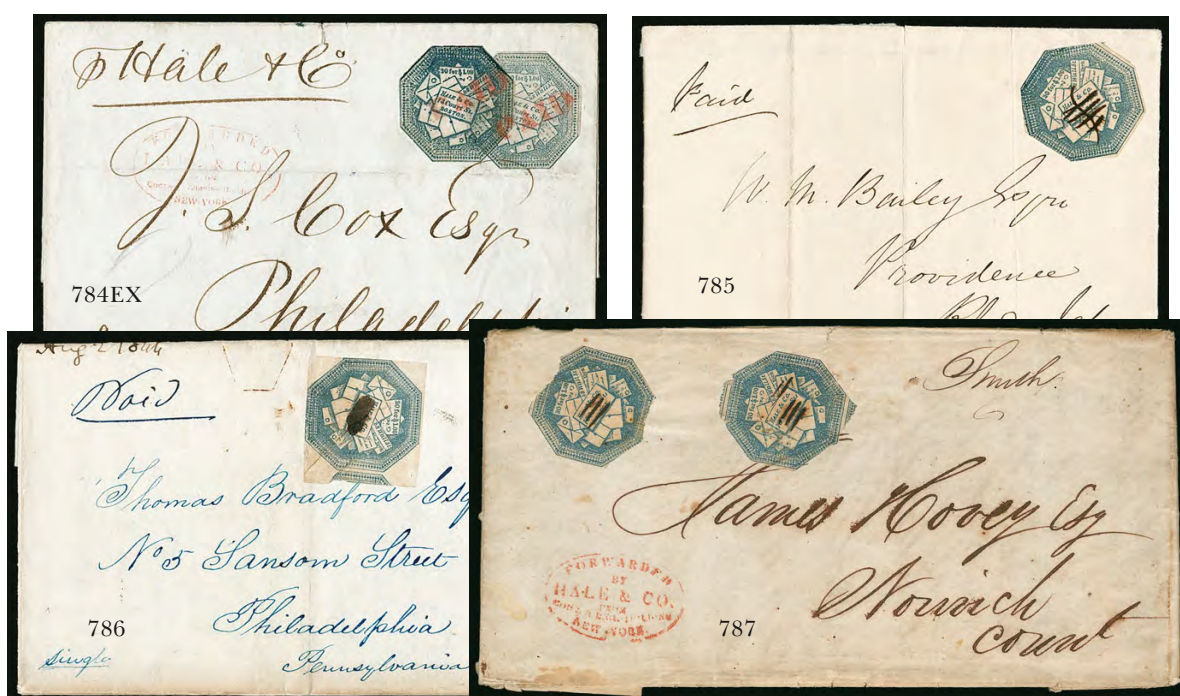 p Hale & Co
20 for $1.00
HALE & CO.
13 Court St.
BOSTON.
PAID
FORWARDED
HALE & CO.
NEW-YORK
J. S. Cox Esqr
Philadelphi
784EX
Paid
W. M. Bailey Esqre
Providence
785
Aug 2 1844
Paid
Thomas Bradford Esq
No 5 Sansom Street
Philadelphia
Pennsylvania
single
786
Smith
HALE & Co.
James Hovey Esq
Norwich
Connt
FORWARDED
BY
HALE & CO.
FROM
NEW-YORK
787